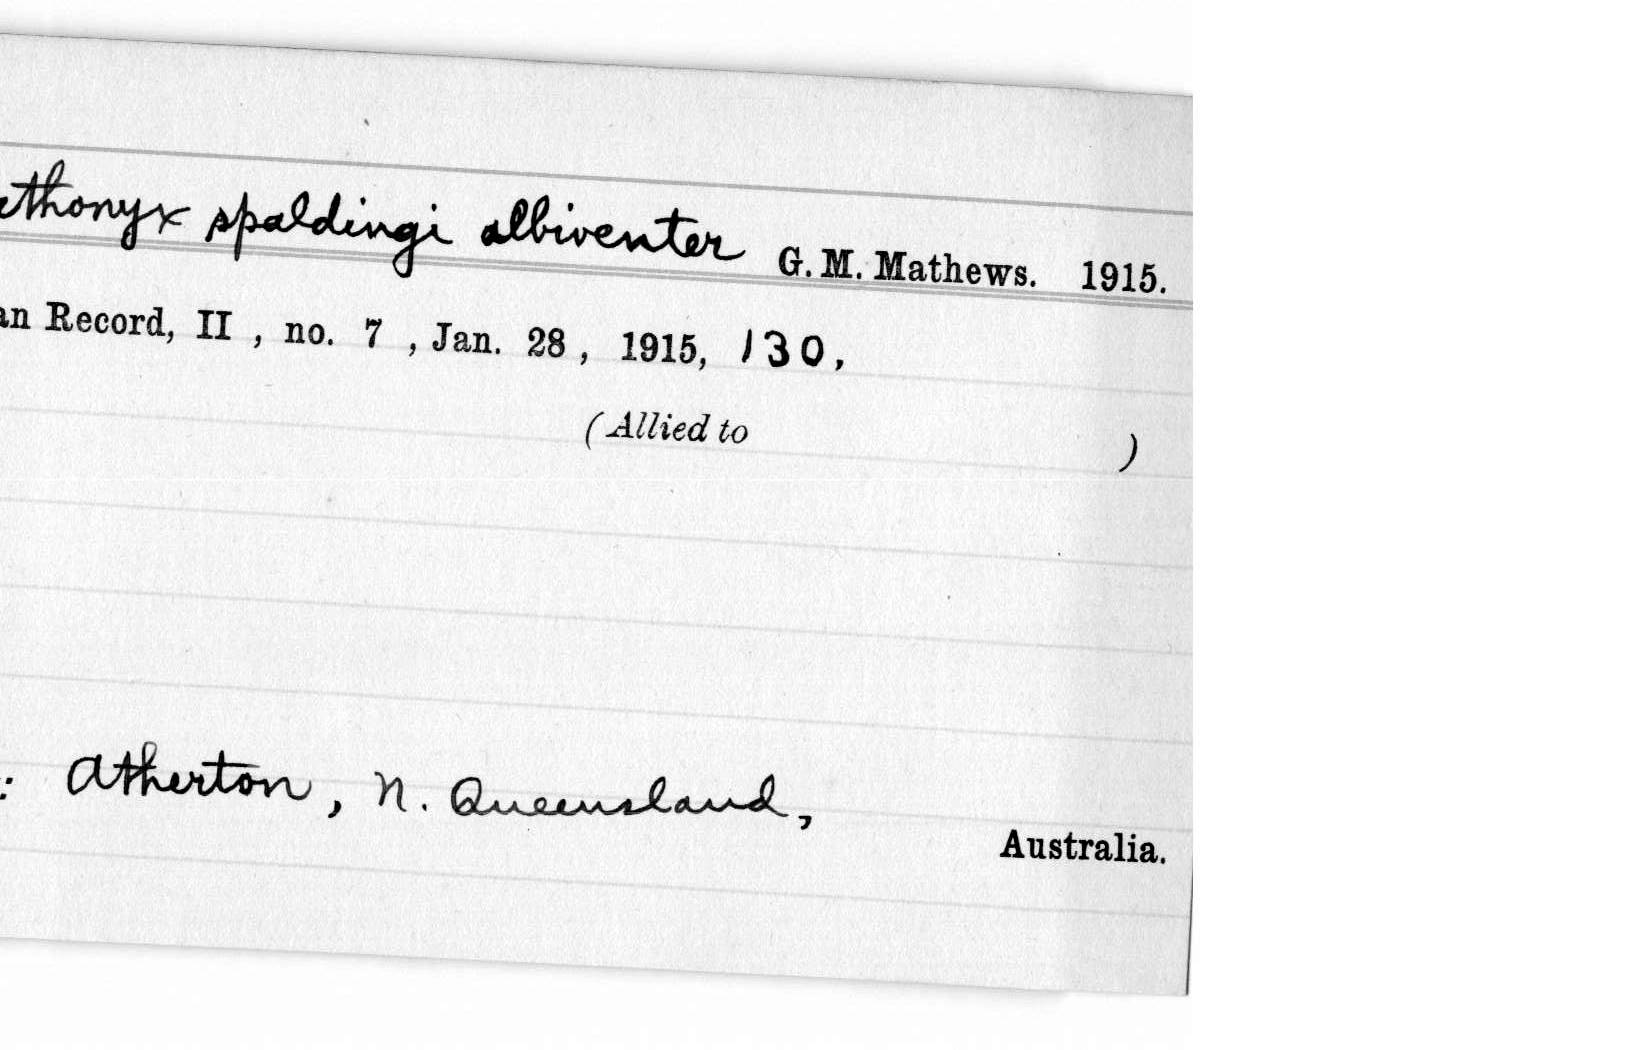 thonyx spaldingi albiventer G. M. Mathews. 1915.
an Record, II , no. 7 , Jan. 28 , 1915, 130,
(Allied to )
: Atherton, N. Queensland,
Australia.